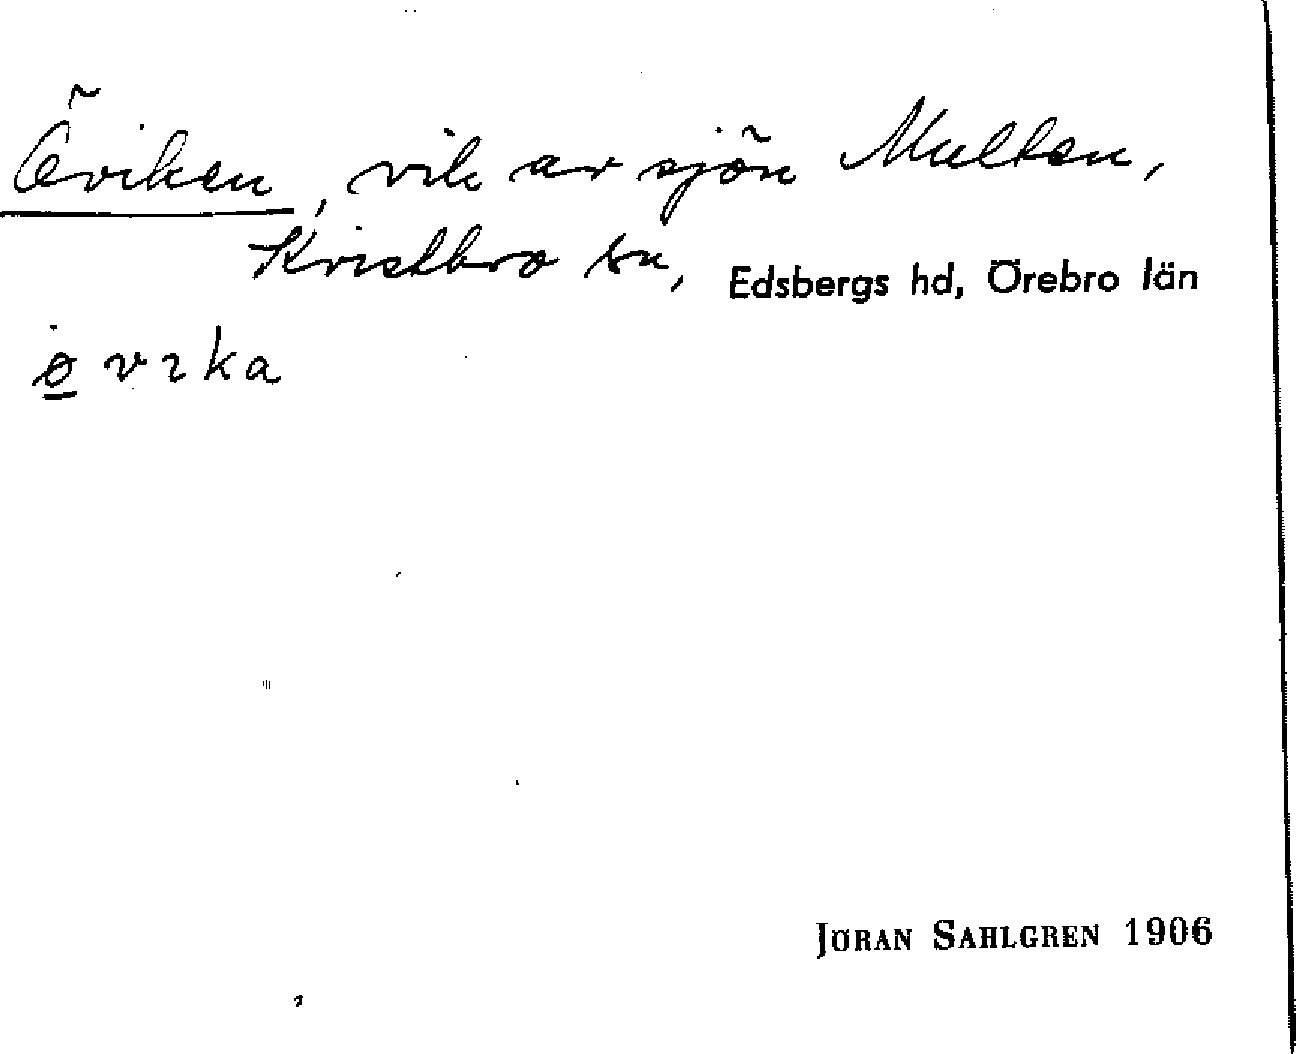 Öviken, vik av sjön Multen,
Kvistbro sn, Edsbergs hd, Örebro län
øvɩka
JÖRAN SAHLGREN 1906